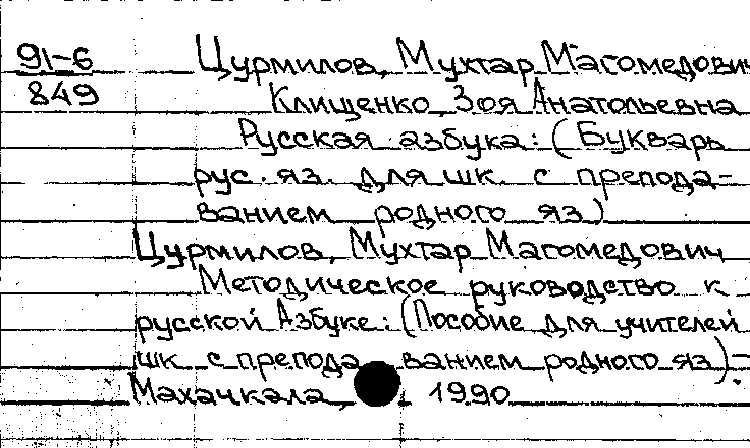 91-6
849
Цурмилов, Мухтар Магомедович
Клищенко, Зоя Анатольевна
Русская азбука: (Букварь
рус. яз. для шк. с препода-
ванием родного яз)
Цурмилов, Мухтар Магомедович
Методическое руководство к
русской Азбуке: (Пособие для учителей
шк с препода ванием родного яз).-
Махачкала, 1990